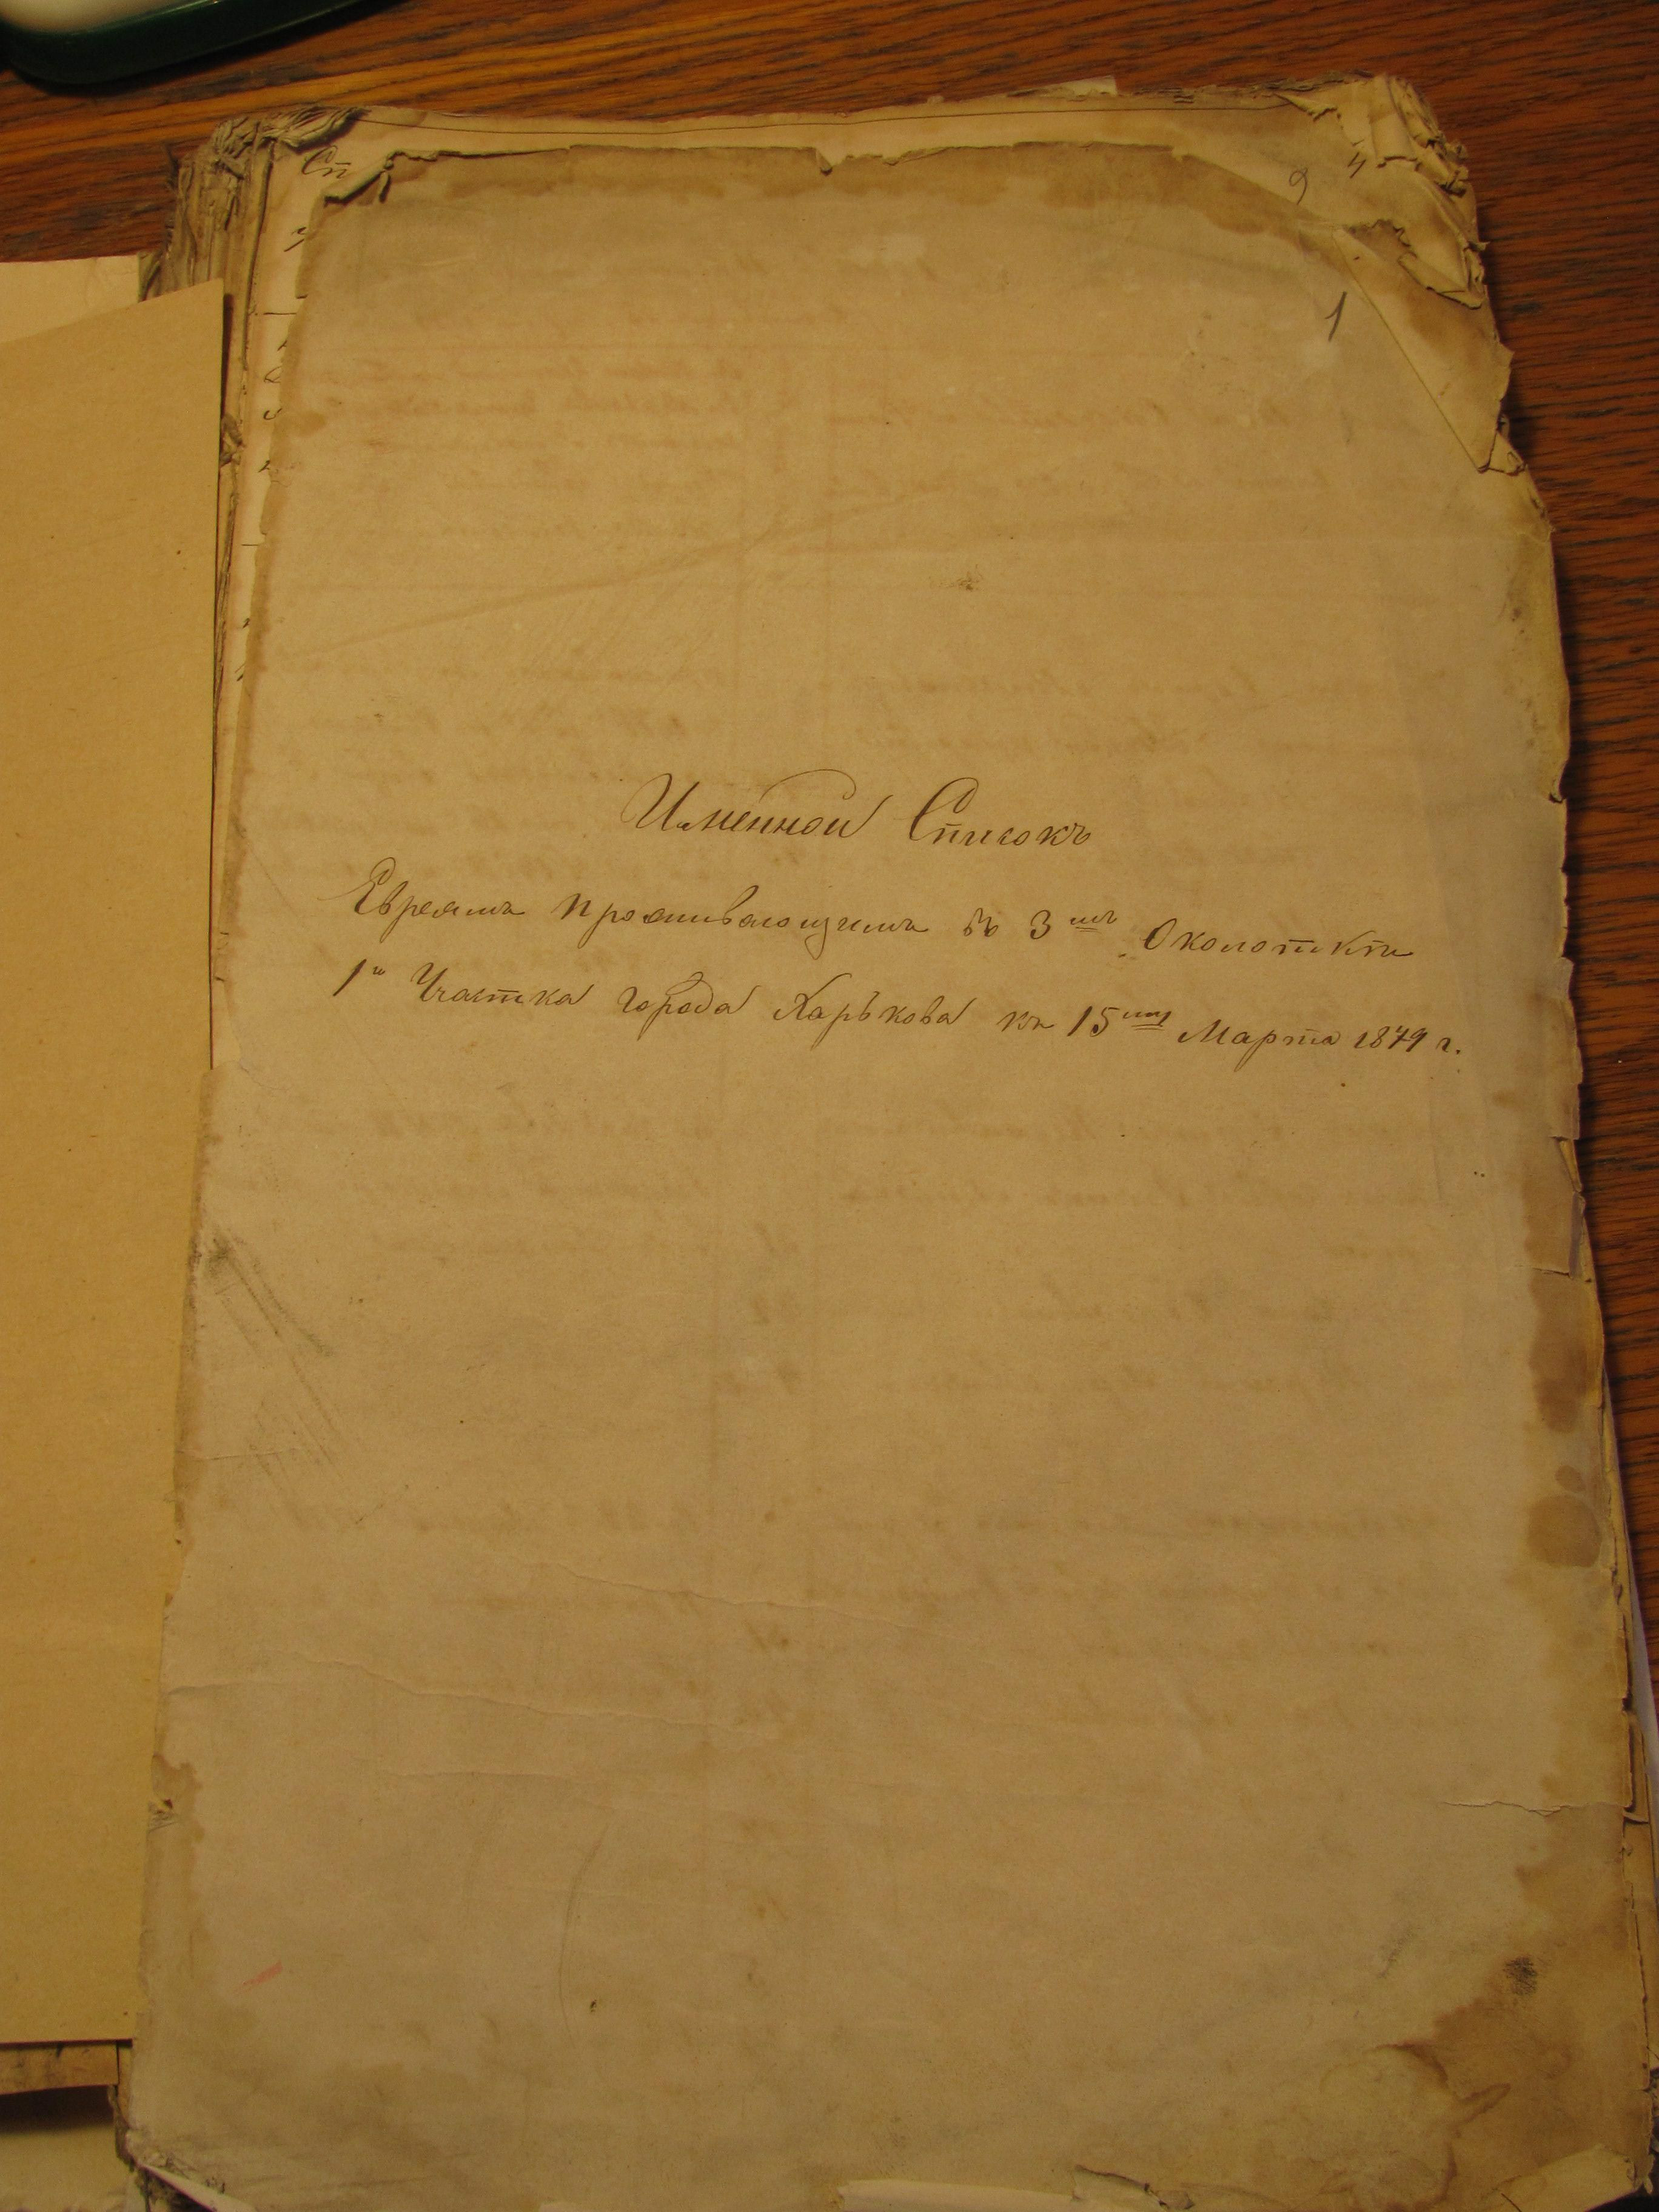 1
Именной Списокъ
Евреямъ проживающимъ въ 3мъ Околоткѣ
1го Участка города Харькова къ 15му Марта 1879 г.